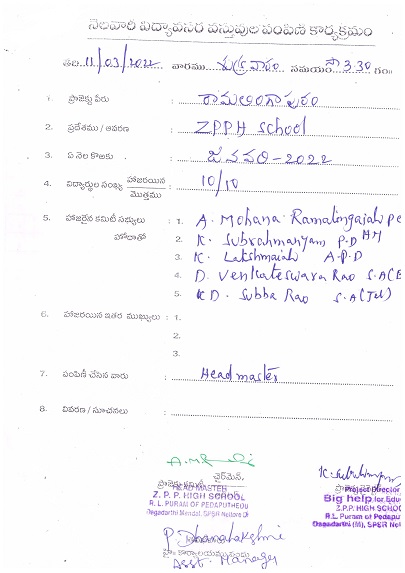 నెలవారీ విద్యావసర వస్తువుల పంపిణీ కార్యక్రమం
తేది 11/03/2022 వారము శుక్రవారం సమయం సా 3.30 గం
1. ప్రాజెక్టు పేరు : రామలింగాపురం
2. ప్రదేశము / ఆవరణ : ZPPH school
3. ఏ నెల కొఱకు : జనవరి-2022
4. విద్యార్థుల సంఖ్య హాజరయిన / మొత్తము : 10/10
5. హాజరైన కమిటీ సభ్యులు : 1. A. Mohana Ramalingaiah
హోదాతో 2. K. Subrahmanyam P.D HM
3. K. Lakshmaiah A.P.D
4. D. Venkateswara Rao S.A(
5. KD. Subba Rao S.A(Tel)
6. హాజరయిన ఇతర ముఖ్యులు : 1.
2.
3.
7. పంపిణీ చేసిన వారు : Headmaster
8. వివరణ / సూచనలు :
ప్రాజెక్టు కమిటీ ఛైర్మెన్,
HEAD MASTER
Z. P. P. HIGH SCHOOL
R. L. PURAM OF PEDAPUTHEDU
Dagadarthi Mandal, SPSR Nellore
K. Subrahmanyam
Project Director
Big help for Edu
Z.P.P. HIGH SCHOO
R.L. Puram of Pedapu
Dagadarthi (M), SPSR Nell
P Dhanalakshmi
Asst. Manager